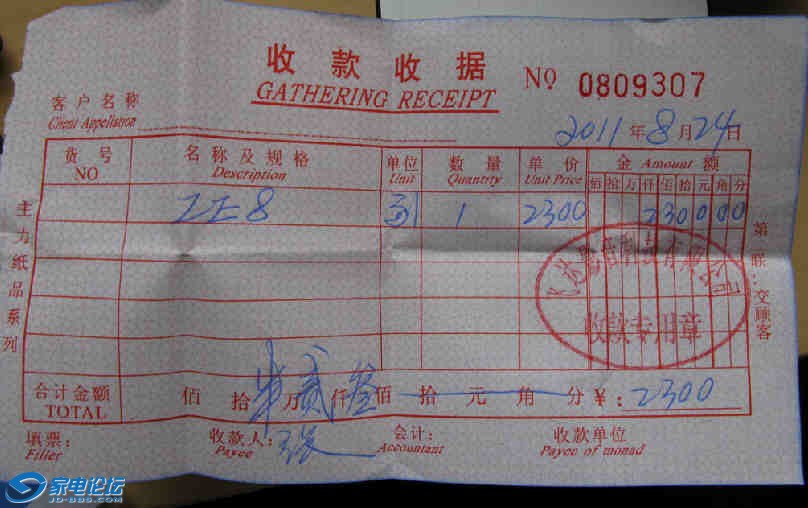 收款收据
GATHERING RECEIPT
№ 0809307
客户名称
Client Appellation
2011年8月24日
货号 名称及规格 单位 数量 单价 金 Amount 额
NO Description Unit Quantity Unit Price 佰拾万仟佰拾元角分
IE8 1 2300 230000
主力纸品系列
第 联:交顾客
收款专用章
合计金额 佰 拾 万贰仟叁佰 拾 元 角 分 ¥: 2300
TOTAL
填票: 收款人: 会计: 收款单位
Filler Payee Accountant Payee of monad
家电论坛
JD-BBS.COM